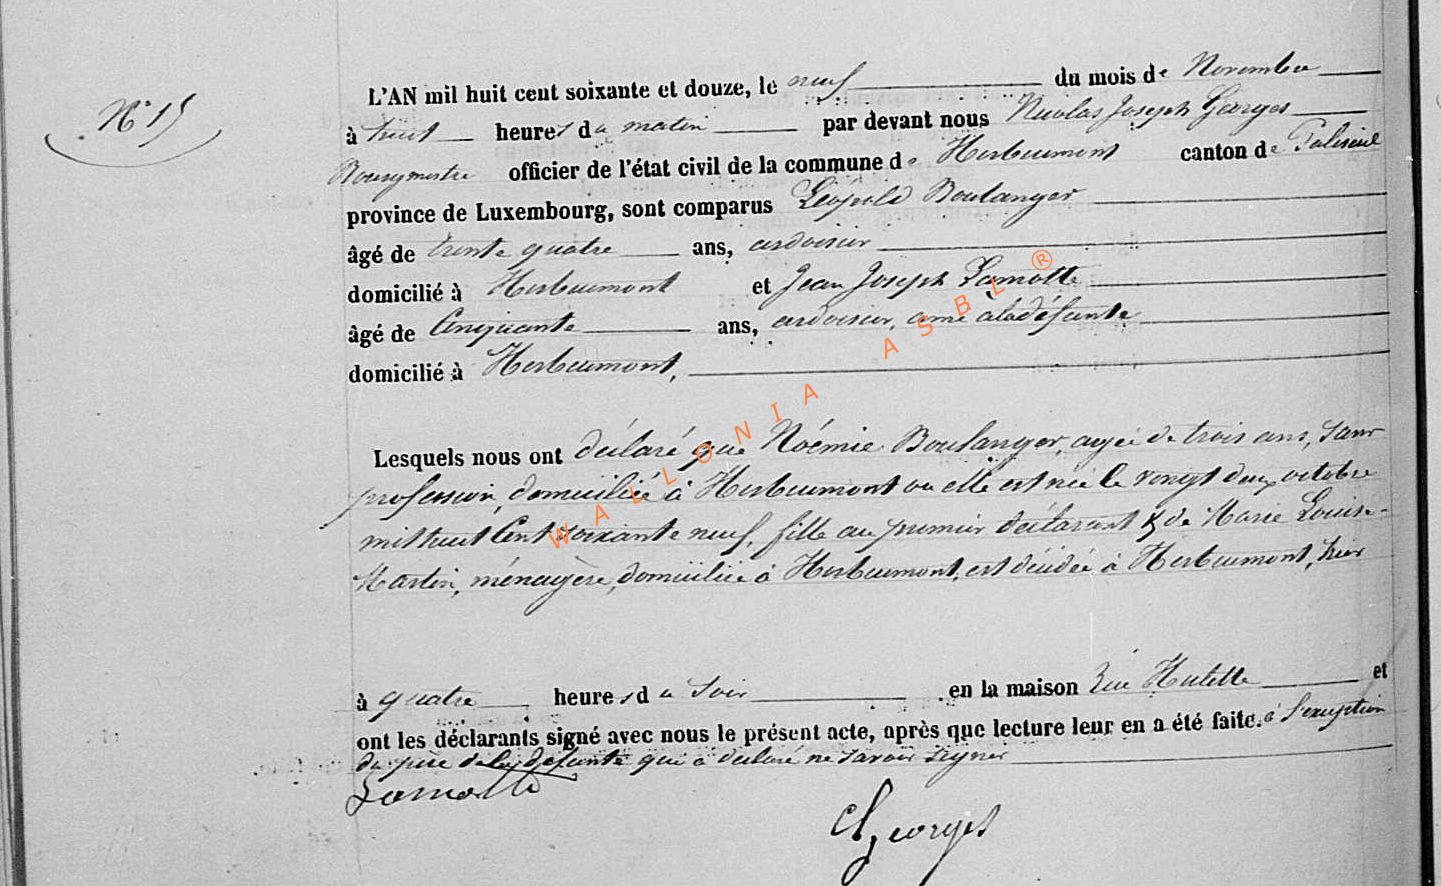 N° 15
L'AN mil huit cent soixante et douze, le neuf du mois de Novembre
à huit heures du matin par devant nous Nicolas Joseph Georges
Bourgmestre officier de l'état civil de la commune de Herbeumont canton de Paliseul
province de Luxembourg, sont comparus Léopold Boulanger
âgé de trente quatre ans, ardoisier
domicilié à Herbeumont et Jean Joseph Lamotte
âgé de Cinquante ans, ardoisier, ami à la défunte
domicilié à Herbeumont,
Lesquels nous ont déclaré que Noémie Boulanger, agée de trois ans, sans
profession, domiciliée à Herbeumont ou elle est née le vingt deux octobre
mil huit Cent soixante neuf, fille au premier déclarant & de Marie Louise
Martin, ménagère, domiciliée à Herbeumont, est décédée à Herbeumont, hier
à quatre heures du soir en la maison Rue Hulette et
ont les déclarants signé avec nous le présent acte, après que lecture leur en a été faite. à l'exception
du père de la défunte qui a déclaré ne savoir signer
Lamotte
Georges
WALLONIA ASBL ®